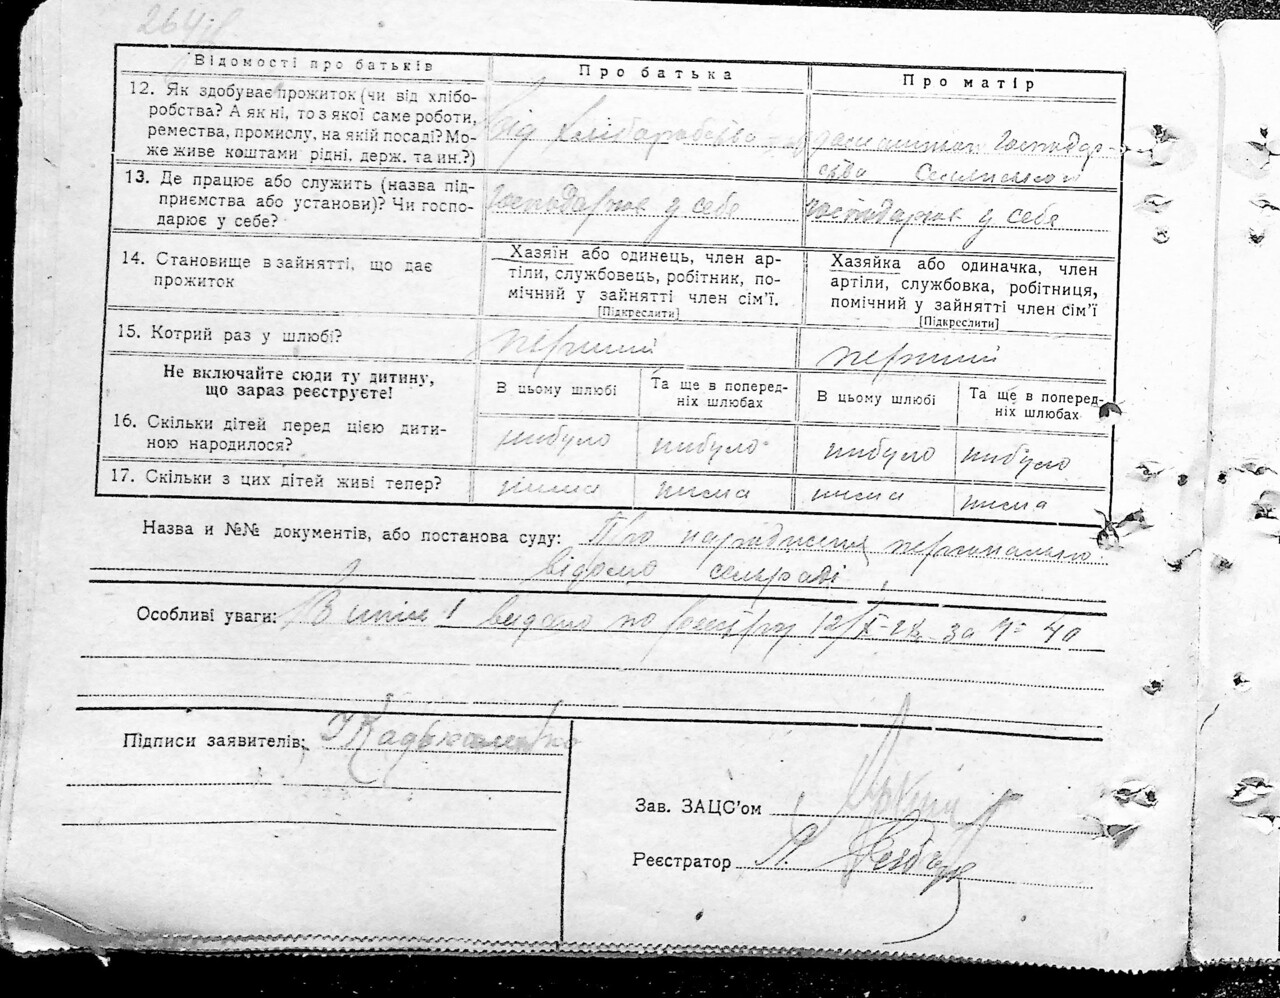 264
Відомості про батьків Про батька Про матір
12. Як здобуває прожиток (чи від хлібо-
робства? А як ні, то з якої саме роботи,
ремества, промислу, на якій посаді? Мо-
же живе коштами рідні, держ. та ин.?)
Від хліборобства
господар-
ства
13. Де працює або служить (назва під-
приємства або установи)? Чи госпо-
дарює у себе?
господарює у себе господарює у себе
14. Становище в зайнятті, що дає
прожиток
Хазяїн або одинець, член ар-
тіли, службовець, робітник, по-
мічний у зайнятті член сім'ї.
[Підкреслити]
Хазяйка або одиначка, член
артіли, службовка, робітниця,
помічний у зайнятті член сім'ї
[Підкреслити]
15. Котрий раз у шлюбі? перший перший
Не включайте сюди ту дитину,
що зараз реєструєте!
В цьому шлюбі
Та ще в поперед-
ніх шлюбах
В цьому шлюбі
Та ще в поперед-
ніх шлюбах
16. Скільки дітей перед цією дити-
ною народилося?
нибуло нибуло нибуло нибуло
17. Скільки з цих дітей живі тепер? нима нима нима нима
Назва и №№ документів, або постанова суду: Про народження персонально
відомо сельраді
Особливі уваги: Витяг видано по реєстру за № 40
Підписи заявителів:
Зав. ЗАЦС'ом
Реєстратор